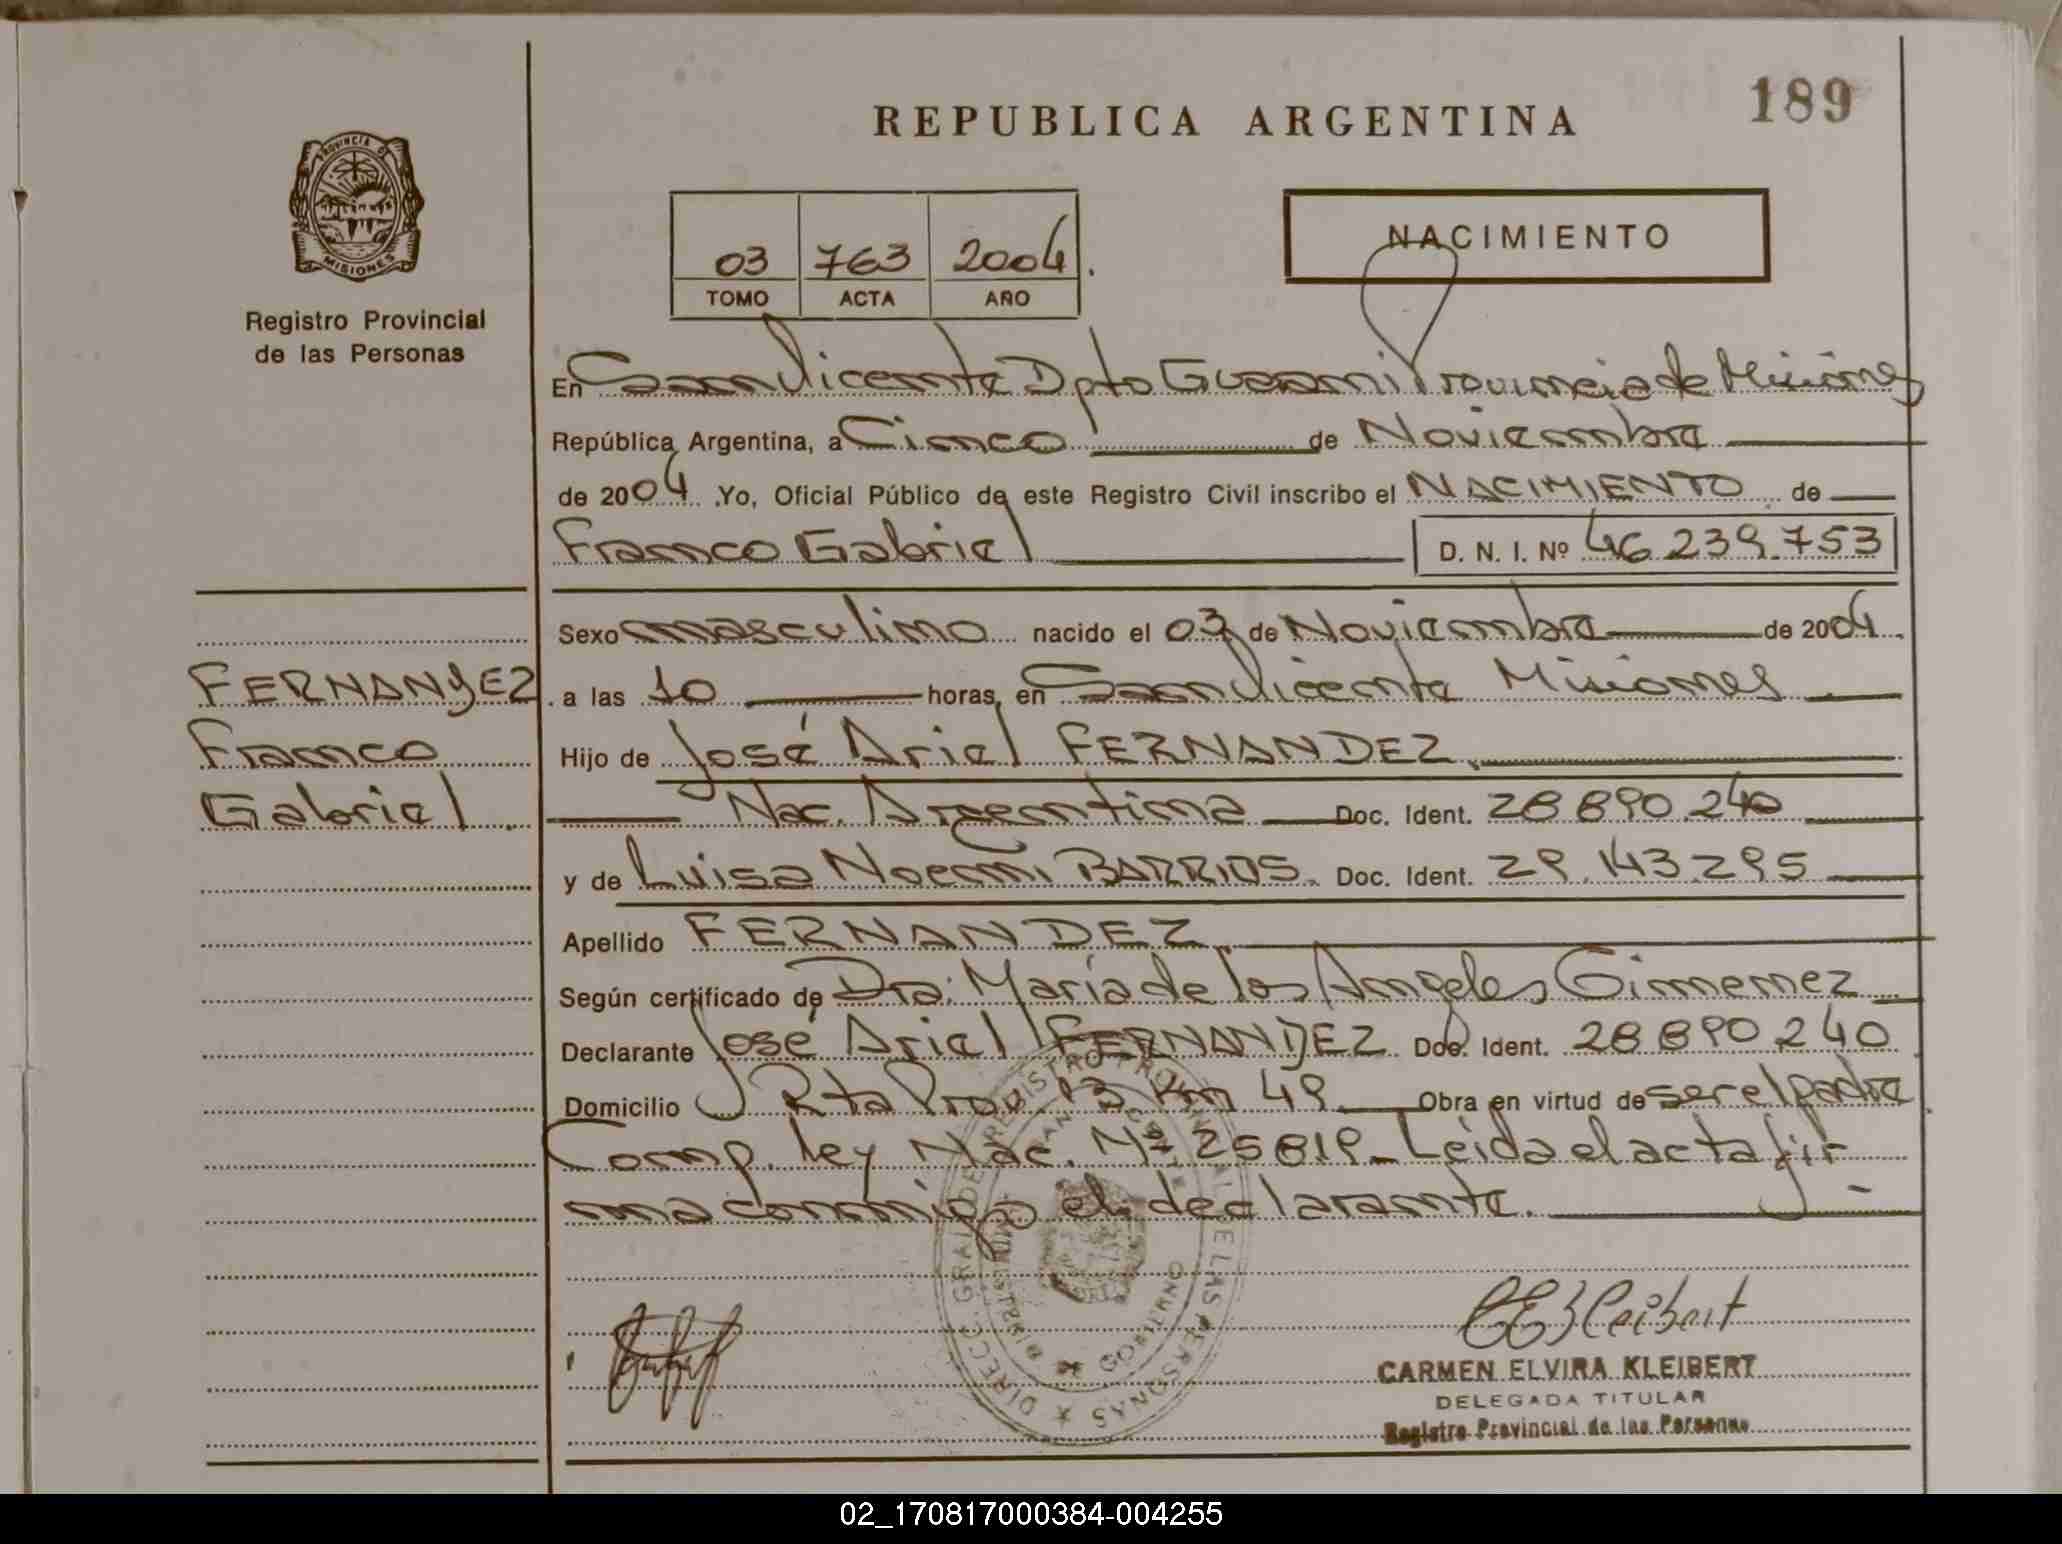 189
REPUBLICA ARGENTINA
PROVINCIA DE
MISIONES
Registro Provincial
de las Personas
03 763 2004.
TOMO ACTA AÑO
NACIMIENTO
En San Vicente Dpto Guarani Provincia de Misiones
República Argentina, a Cinco de Noviembre
de 2004 .Yo, Oficial Público de este Registro Civil inscribo el NACIMIENTO de
Franco Gabriel D. N. I. Nº 46.239.753
Sexo masculino nacido el 03 de Noviembre de 2004.
FERNANDEZ
Franco
Gabriel.
a las 10 horas, en San Vicente Misiones
Hijo de José Ariel FERNANDEZ.
Nac. Argentina Doc. Ident. 28.890.240
y de Luisa Noemi BARRIOS. Doc. Ident. 29.143.295
Apellido FERNANDEZ.
Según certificado de Dra: María de los Angeles Gimenez
Declarante José Ariel FERNANDEZ Doc. Ident. 28.890.240
Domicilio Rta Prov. 13 Km 49 Obra en virtud de ser el padre
Comp. ley Nac. Nº 25819_Leída el acta fir-
ma conmigo el declarante.
DIRECC. GRAL DE REGISTRO PROVINCIAL DE LAS PERSONAS
CEKleibert
CARMEN ELVIRA KLEIBERT
DELEGADA TITULAR
Registro Provincial de las Personas
02_170817000384-004255